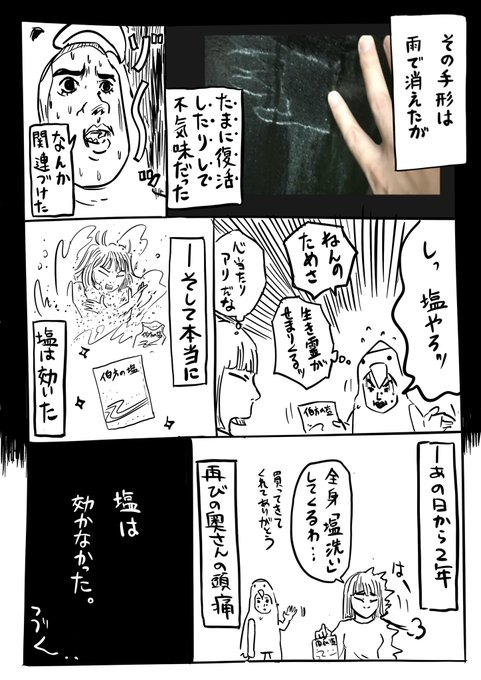 その手形は
雨で消えたが
たまに復活
したりして
不気味だった
ゾゾ
なんか
関連づけた
しっ 塩やろッ
ねんの
ためさ
生き霊が
せまりくるッ
心当たり
アリだな
伯方の塩
ーそして本当に
伯方の塩
塩は効いた
ーあの日から2年
はー
全身「塩洗い」
してくるわ…
買ってきて
くれてありがとう
再びの奥さんの頭痛
塩は
効かなかった。
つづく…